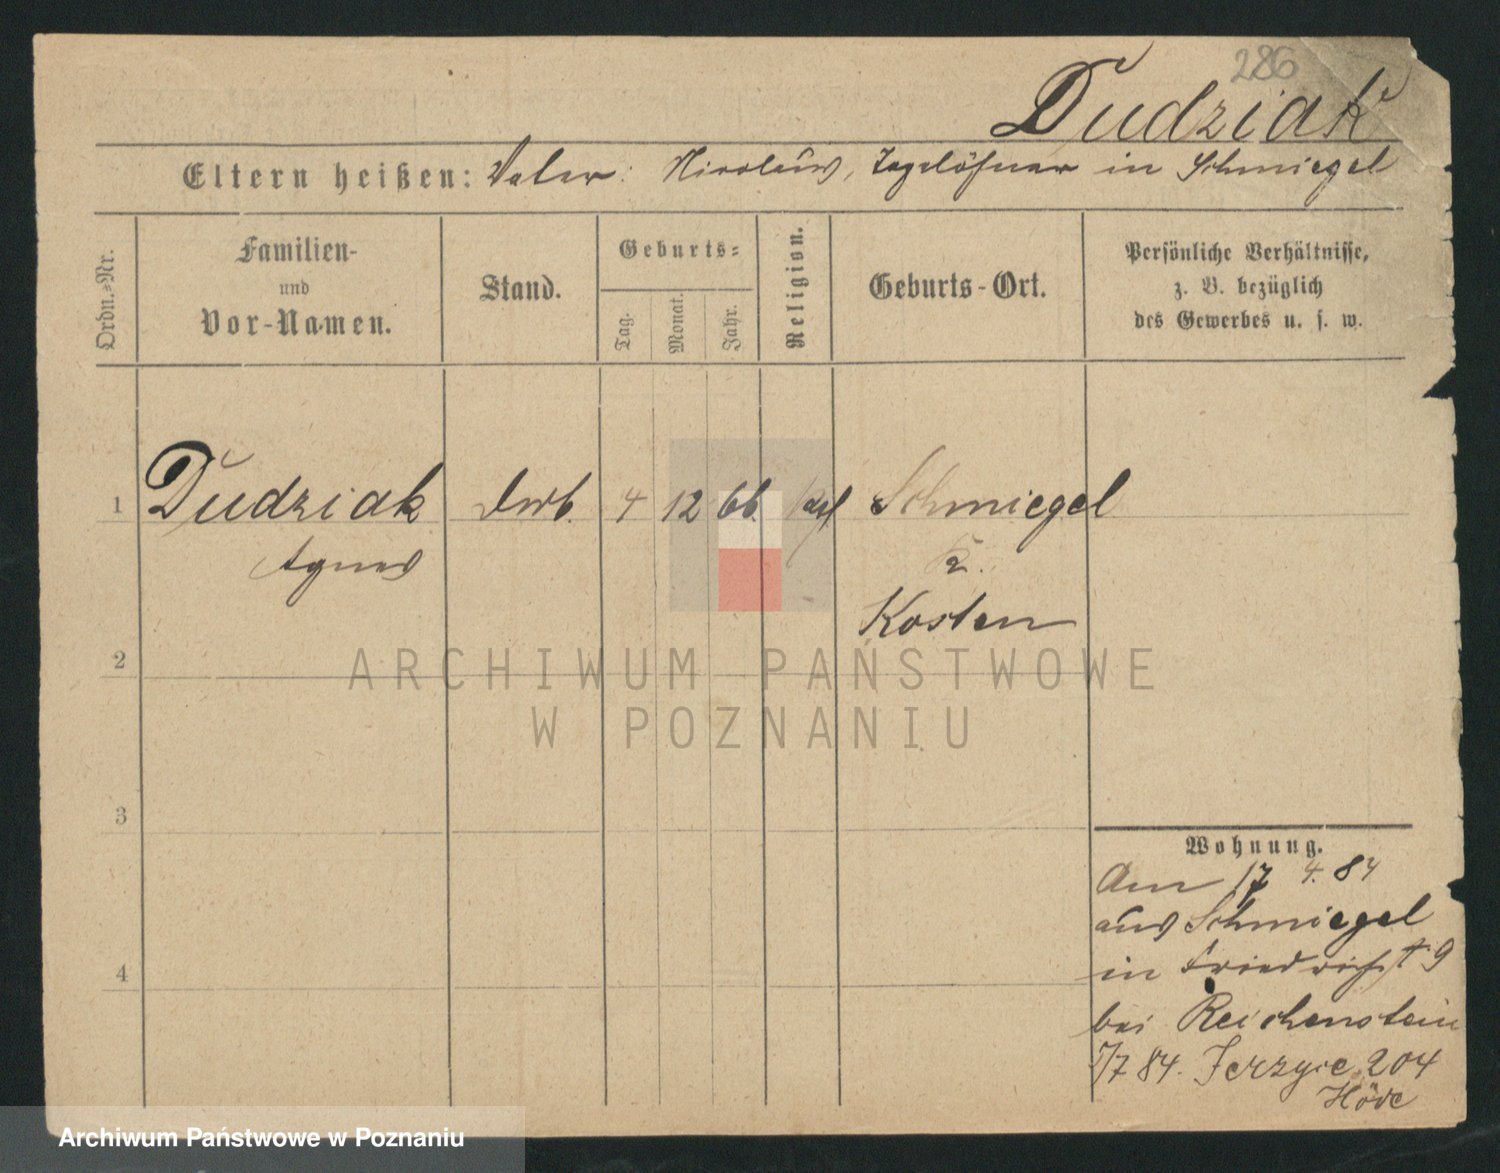 286
Dudziak
Eltern heißen: Vater: Nicolaus, Tagelöhner in Schmiegel
Ordn.-Nr.
Familien-
und
Vor-Namen.
Stand.
Geburts-
Tag.
Monat.
Jahr.
Religion.
Geburts-Ort.
Persönliche Verhältnisse,
z. B. bezüglich
des Gewerbes u. s. w.
1 Dudziak 4 12 66. kath Schmiegel
Agnes
Kosten
2
3
4
ARCHIWUM PAŃSTWOWE
W POZNANIU
Wohnung.
Am 17 4. 84
aus Schmiegel
in Friedrichst 9
bei Reichenstein
/7 84. Jerzyce 204
Archiwum Państwowe w Poznaniu